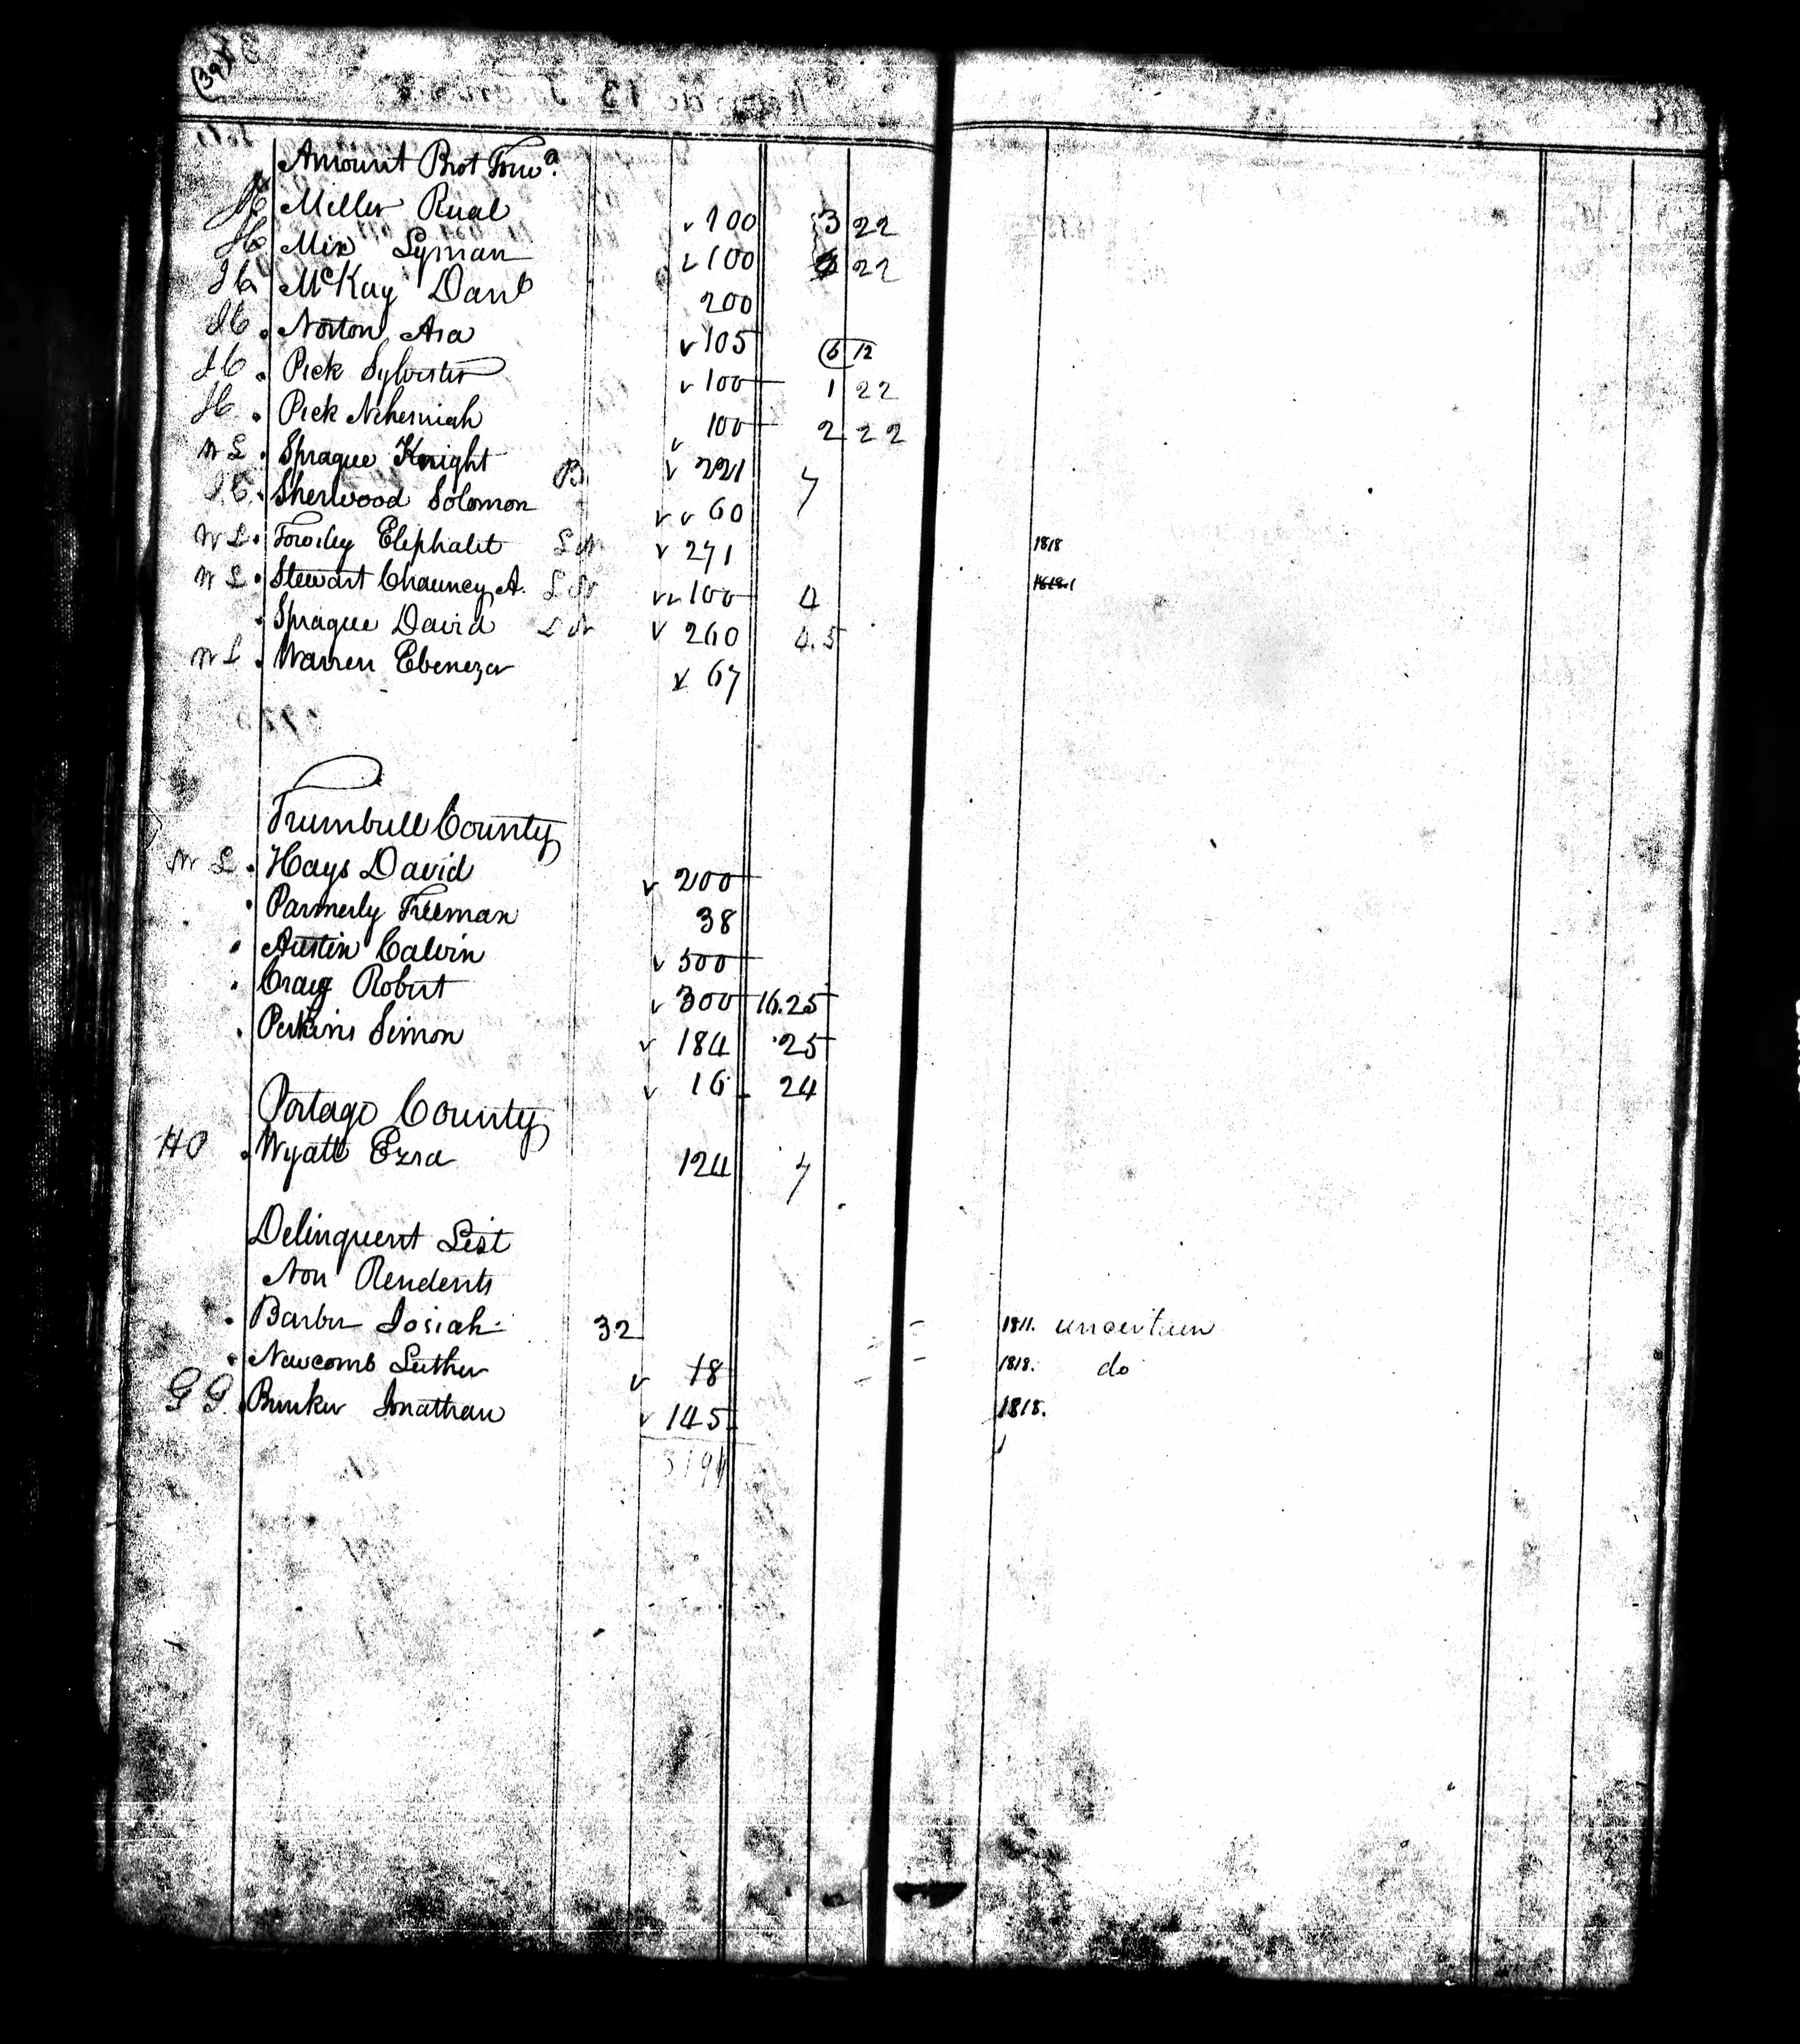 (39)
Amount Brot Forwd.
H Miller Rual 100 3 22
H Mix Lyman 100 22
H McKay Danl 200
H Norton Asa 105 6 12
H Pick Sylvester 100 1 22
H Pick Nehemiah 100 2 22
W L Sprague Knight B 221 7
H Sherwood Solomon 60
W L Towsley Eliphalet L W 271 1818
W L Stewart Chauncy A. L W 100 4 1818
Sprague David L W 260 4.5
W L Warren Ebenezer 67
Trumbull County
W L Hays David 200
Parmerly Freeman 38
Austin Calvin 500
Craig Robert 300 16.25
Perkins Simon 184 25
16 24
Portage County
HO Wyatt Ezra 124 7
Delinquent List
Non Rendents
Barber Josiah 32 1811. uncertain
Newcomb Luther 18 1818. do
G G. Bunker Jonathan 145 1818.